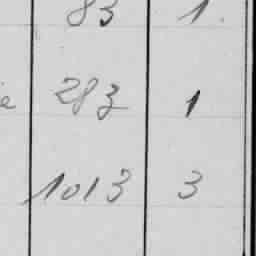 83 1.
283 1
1013 3